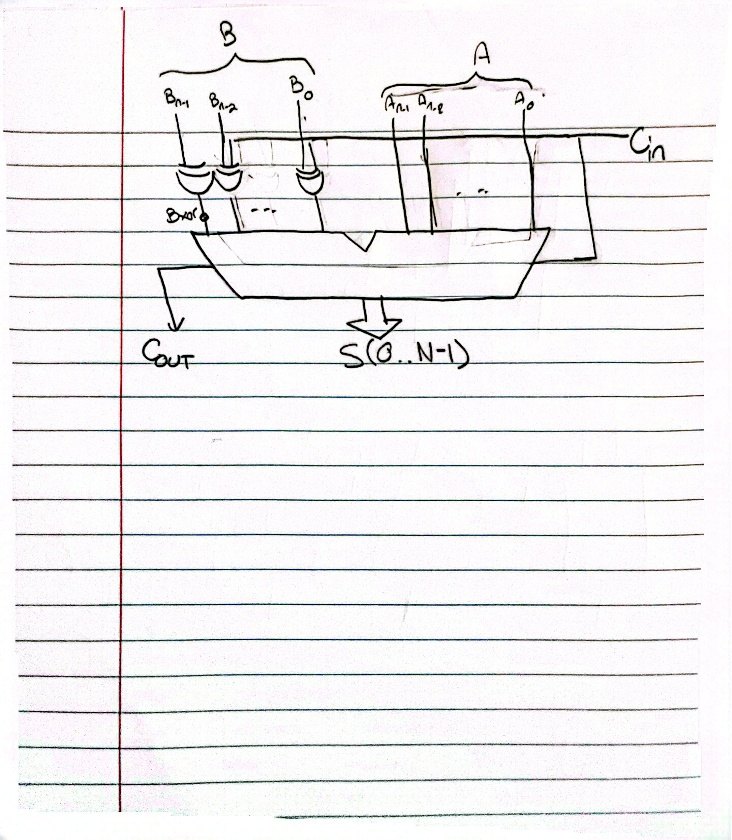 B
A
Bn-1 Bn-2 B0
An-1 An-2 A0
Cin
...
COUT
S(0..N-1)